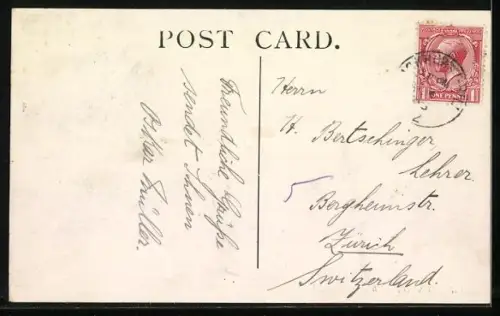 POST CARD.
Freundliche Grüße
sendet Ihnen
Oskar Müller.
Herrn
H. Bertschinger,
Lehrer.
Bergheimstr.
Zürich
Switzerland.
5
1 ONE PENNY 1